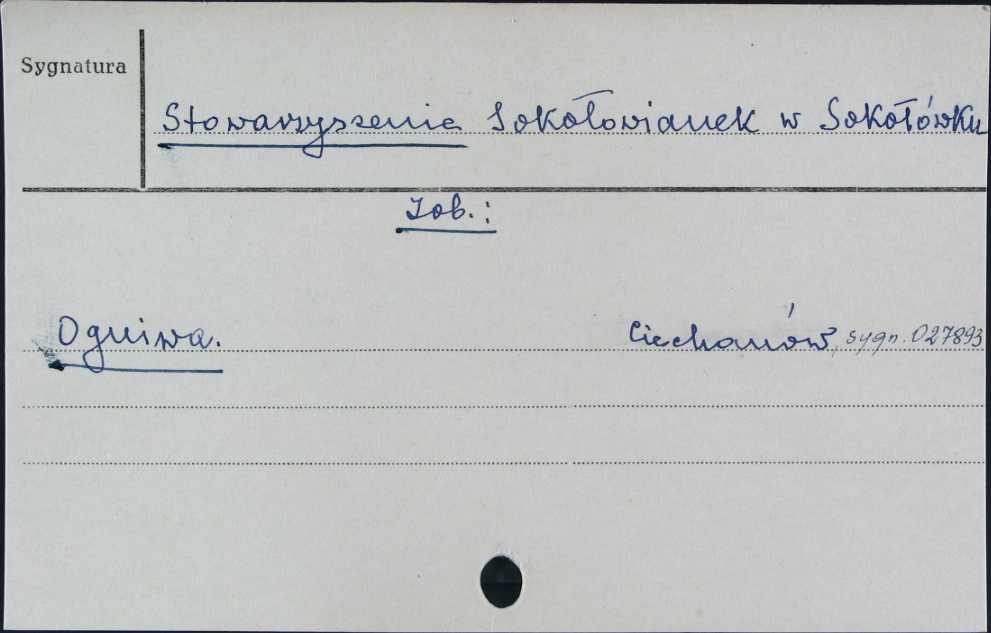 Sygnatura
Stowarzyszenie Sokołowianek w Sokołówku
Zob.:
Ogniwa. Ciechanów, sygn. 027893